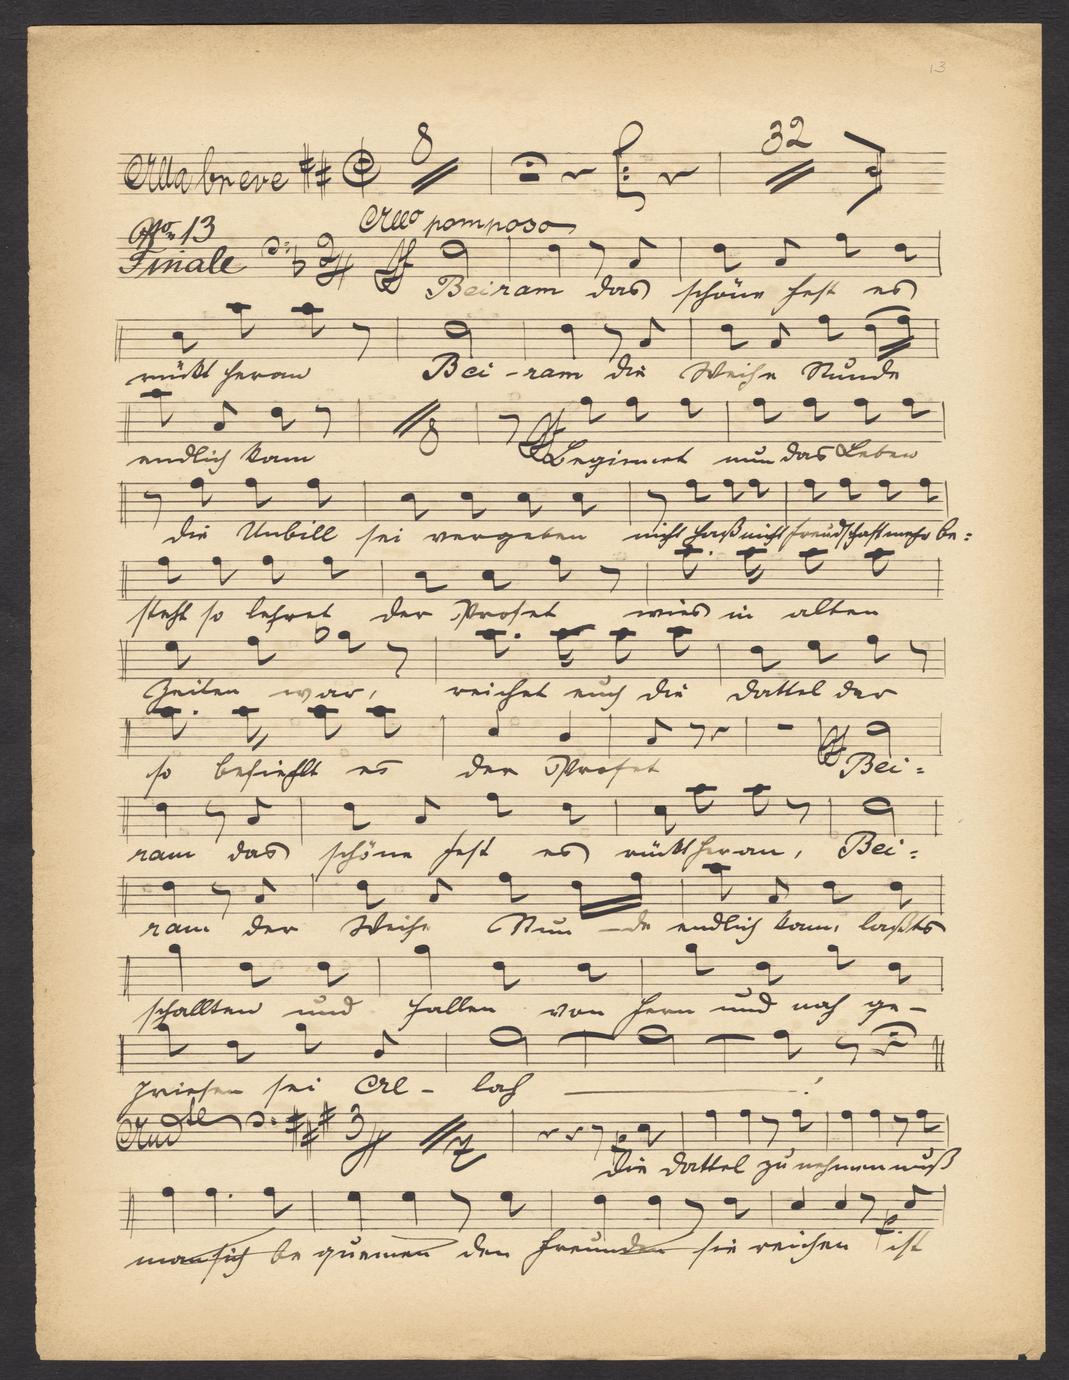 13
Alla breve 8 32
No 13 Allo pomposo
Finale 2/4 ff
Beiram das schöne Fest es
rückt heran Bei-ram die Weihe Stunde
endlich kam 8 Beginnet nun das Leben
die Unbill sei vergeben nicht Haß nicht Freundschaft mehr be=
steht so lehret der Profet wies in alten
Zeiten war, reichet euch die Dattel dar
so befiehlt es der Profet ff Bei=
ram das schöne Fest es rückt heran, Bei=
ram der Weihe Stun-de endlich kam, laßts
schallten und hallen von fern und nah ge-
priesen sei Al-lah !
Andte 3/4 7
p die Dattel zu nehmen muß
man sich be quemen den Freunden sie reichen p ist